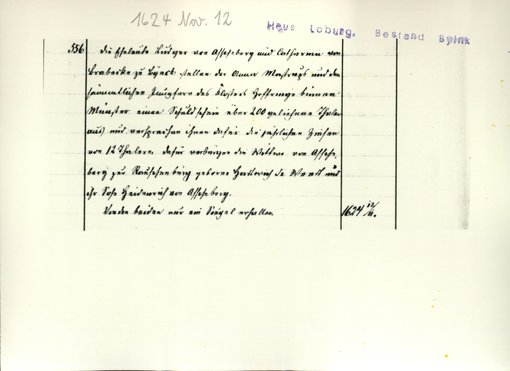 1624 Nov. 12
Haus Loburg. Bestand Byink
336
die Eheleute Rütger von Asscheberg und Catharina von
Brabecke zu Byinck stellen der Anna und den
sämmtlichen Jungfern des Klosters binnen
Münster einen Schuldschein über 200 geliehene Thaler
aus und versprechen ihnen dafür die jährlichen Zinsen
von 12 Thalern. dafür verbürgen die Wittwe von Assche-
berg zur geborene de Wendt und
ihr Sohn Heidenreich von Asscheberg.
Von den beiden nur ein Siegel erhalten.
1624 12/11.